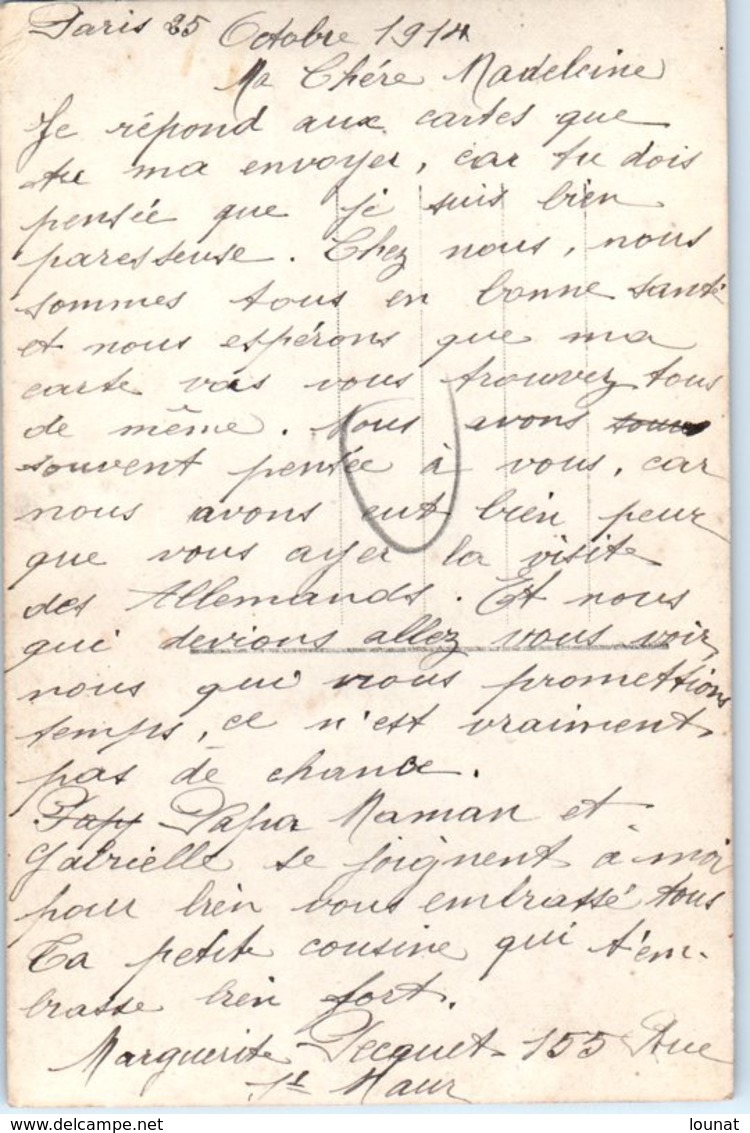 Paris 25 Octobre 1914
Ma Chére Madeleine
Je répond aux cartes que
tu ma envoyer, car tu dois
pensée que je suis bien
paresseuse. Chez nous, nous
sommes tous en bonne santé
et nous espérons que ma
carte vas vous trouvez tous
de même. Nous avons
souvent pensée à vous, car
nous avons eut bien peur
que vous ayer la visite
des Allemands. Et nous
qui devions allez vous voir,
nous qui nous promettions
temps, ce n'est vraiment
pas de chance.
Papy Papa Maman et
Gabrielle se joignent à moi
pour bien vous embrassé tous
Ta petite cousine qui t'em-
brasse bien fort.
Marguerite Decquet 155 Rue
St Maur
lounat